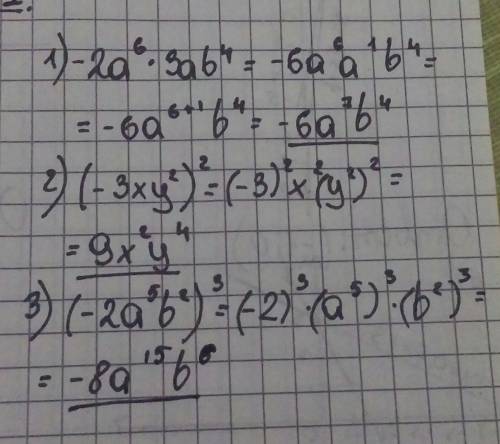 1) -2a⁶·3ab⁴ = -6a⁶a¹b⁴ =
= -6a⁶⁺¹b⁴ = -6a⁷b⁴
2) (-3xy²)² = (-3)²x²(y²)² =
= 9x²y⁴
3) (-2a⁵b²)³ = (-2)³·(a⁵)³·(b²)³ =
= -8a¹⁵b⁶